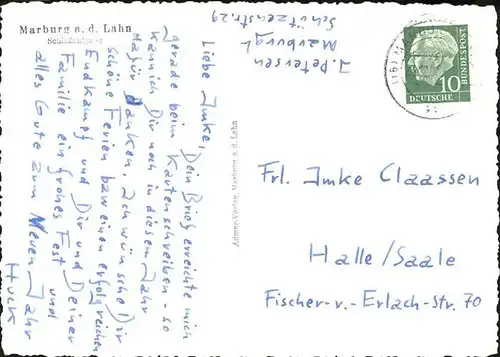 Marburg a. d. Lahn
J. Petersen
Marburg/
Schützenstr. 29
Liebe Imke,
Dein Brief erreichte mich
gerade beim Kartenschreiben - so
kann ich Dir noch in diesem Jahr
dafür danken. Ich wünsche Dir
schöne Ferien bzw einen erfolgreichen
Endkampf und Dir und Deiner
Familie ein frohes Fest und
alles Gute zum Neuen Jahr
Huck
Admer-Verlag, Marburg a. d. Lahn
10
DEUTSCHE
BUNDESPOST
Frl. Imke Claassen
Halle/Saale
Fischer-v.-Erlach-Str. 70